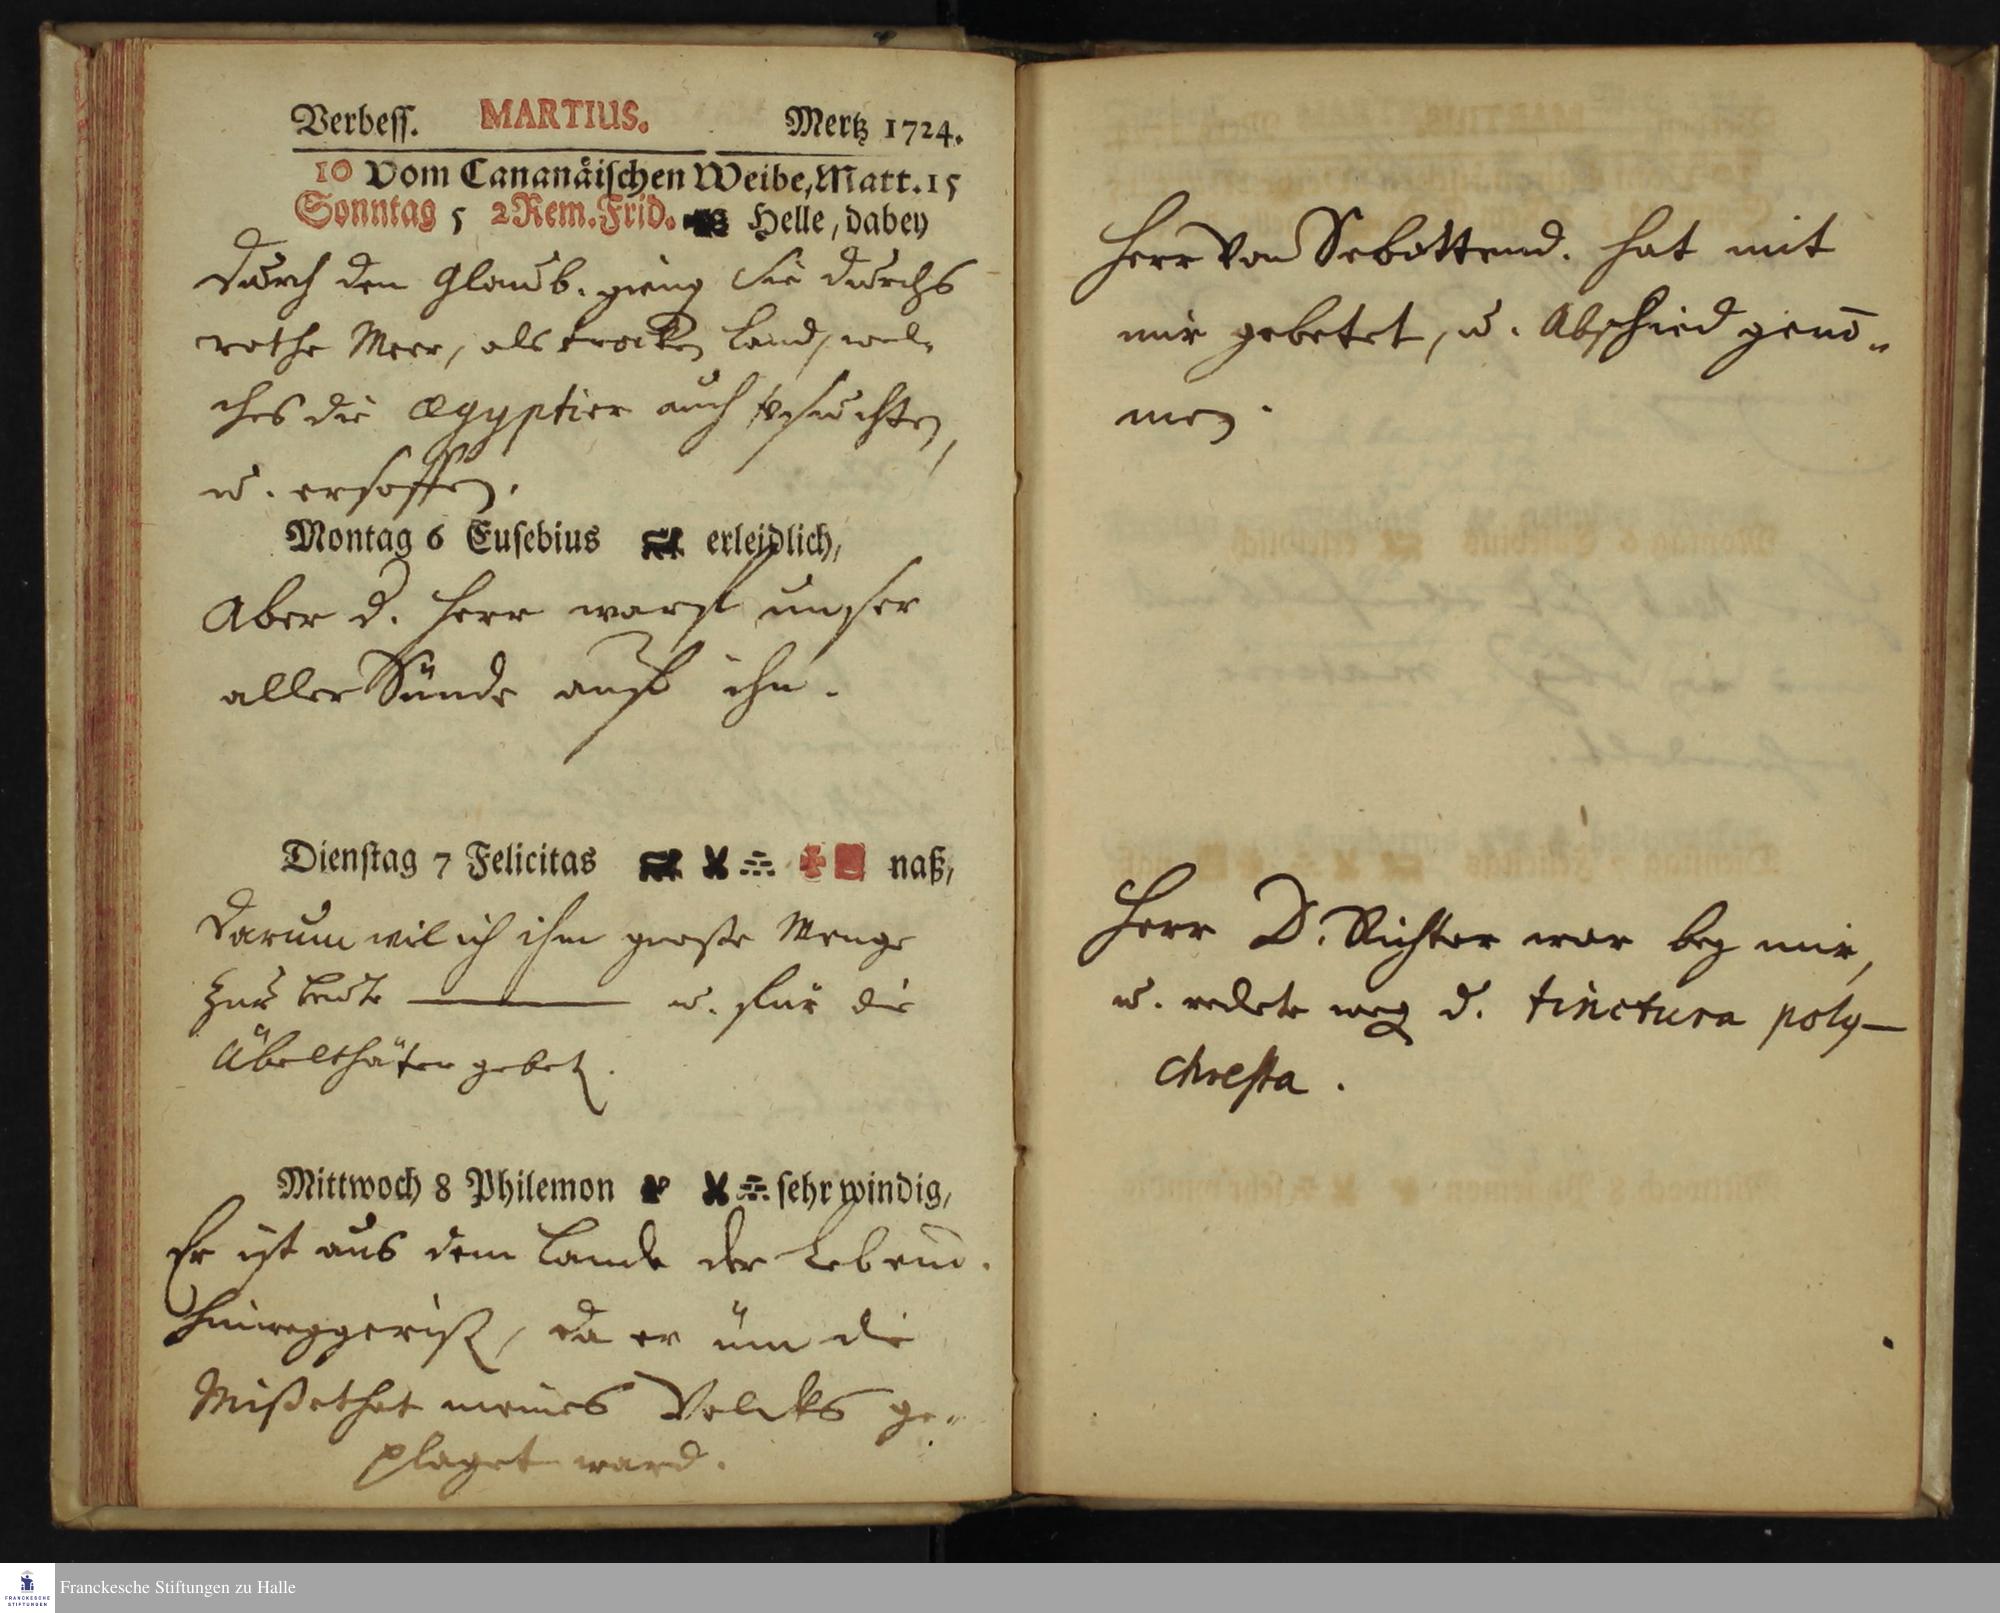 Verbess. MARTIUS. Mertz 1724.
10 Vom Cananäischen Weibe, Matt. 15
Sonntag 5 2 Rem. Frid. Helle, dabey
Durch den Glaub. gieng sie durchs
rothe Meer, als trocken Land, wel-
ches die Ægyptier auch versuchten,
u. ersoffen.
Montag 6 Eusebius erleidlich,
Aber d. Herr warf unser
aller Sünde auf ihn.
Dienstag 7 Felicitas naß,
Darum wil ich ihm große Menge
zur beute — u. für die
Übelthäter gebet.
Mittwoch 8 Philemon sehr windig,
Er ist aus dem Lande der Lebend.
hinweggerißen, da er üm die
Mißethat meines Volcks ge-
plaget ward.
Herr von Sebottend. hat mit
mir gebetet, u. Abschied genom̄-
men.
Herr D. Richter war bey mir,
u. redete weg. d. tinctura poly-
chresta.
Franckesche Stiftungen zu Halle
FRANCKESCHE
STIFTUNGEN